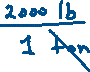 2000 lb
1 ton